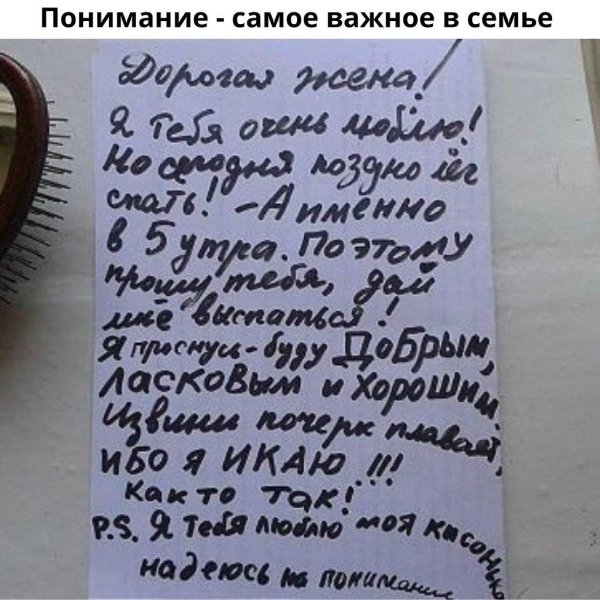 Понимание - самое важное в семье
Дорогая жена!
Я тебя очень люблю!
Но сегодня поздно лёг
спать! - А именно
в 5 утра. Поэтому
прошу тебя, дай
мне выспаться!
Я проснусь - буду Добрым,
Ласковым и Хорошим.
Извини почерк плавает,
ибо я ИКАЮ!!!
Как то так!
P.S. Я тебя люблю моя кисонька
надеюсь на понимание